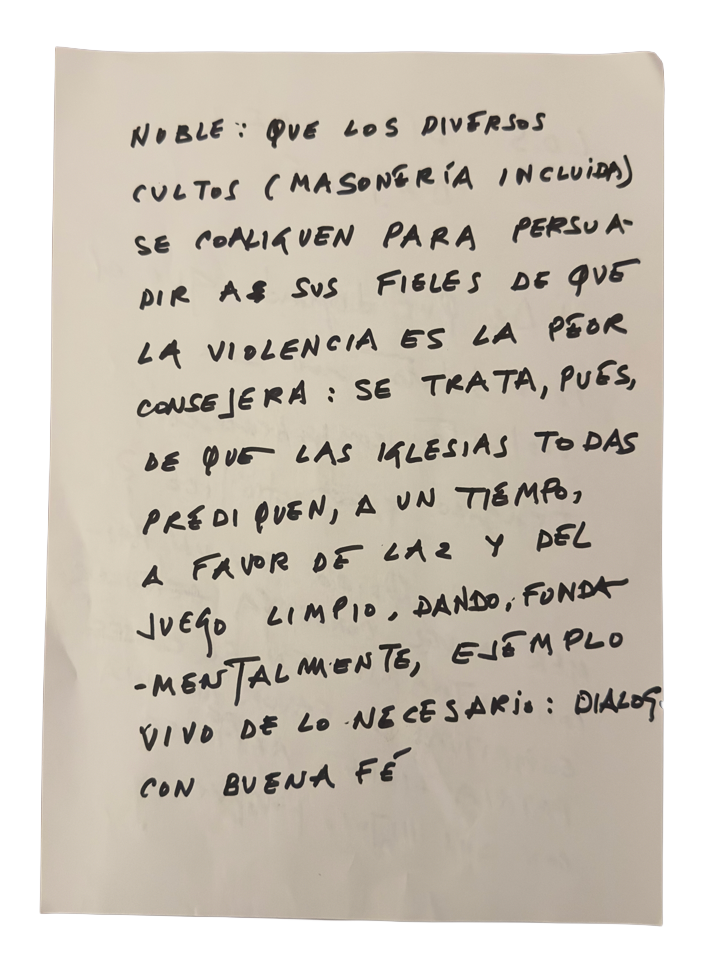 NOBLE: QUE LOS DIVERSOS
CULTOS (MASONERÍA INCLUIDA)
SE COALIGUEN PARA PERSUA-
DIR A SUS FIELES DE QUE
LA VIOLENCIA ES LA PEOR
CONSEJERA: SE TRATA, PUES,
DE QUE LAS IGLESIAS TODAS
PREDIQUEN, A UN TIEMPO,
A FAVOR DE LAZ Y DEL
JUEGO LIMPIO, DANDO, FUNDA
-MENTALMENTE, EJEMPLO
VIVO DE LO NECESARIO: DIALOG
CON BUENA FÉ